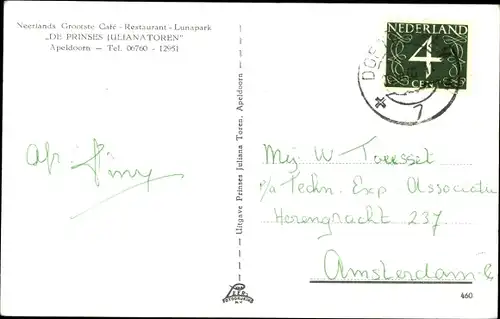 Neerlands Grootste Café - Restaurant - Lunapark
„DE PRINSES JULIANATOREN"
Apeldoorn — Tel. 06760 - 12951
NEDERLAND
4
CENT
DOE
7
Uitgave Prinses Juliana Toren, Apeldoorn
Mej. W
p/a Techn. Exp Associatie
Herengracht 237
Amsterdam-C
460